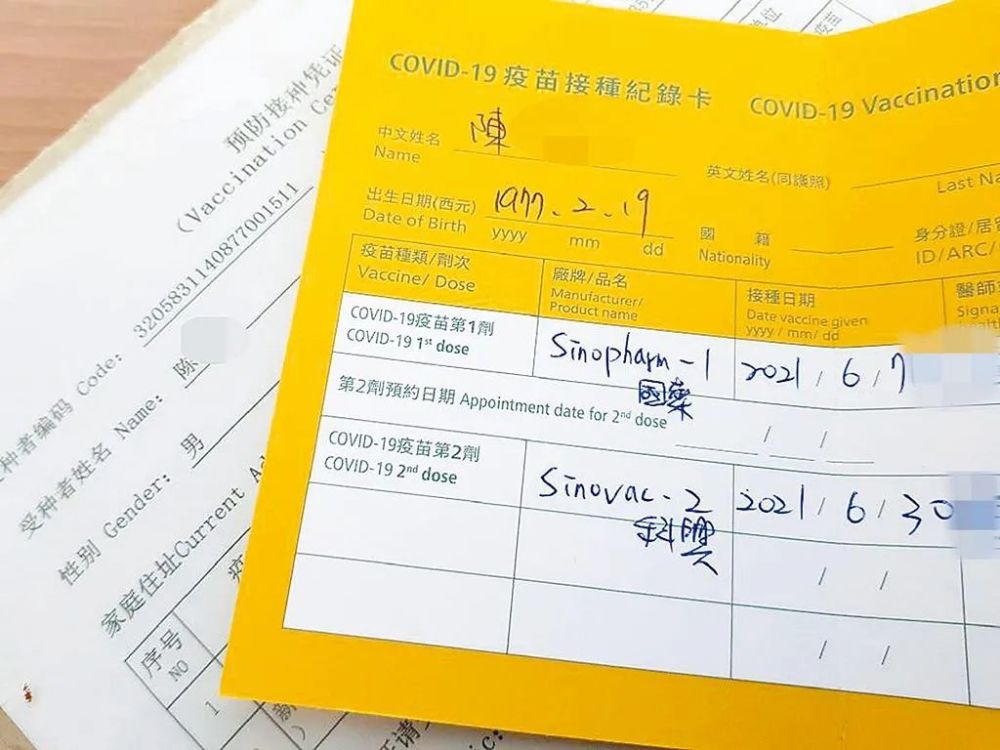 COVID-19 疫苗接種紀錄卡 COVID-19 Vaccination
中文姓名 陳
Name
英文姓名(同護照)
Last Na
出生日期(西元) 1977.2.19
Date of Birth yyyy mm dd
國籍
Nationality
身分證/居留
ID/ARC/
疫苗種類/劑次
Vaccine/ Dose
廠牌/品名
Manufacturer/
Product name
接種日期
Date vaccine given
yyyy / mm/ dd
醫師
Signa
COVID-19疫苗第1劑
COVID-19 1st dose
Sinopharm-1 2021 / 6 / 7
國藥
第2劑預約日期 Appointment date for 2nd dose / /
COVID-19疫苗第2劑
COVID-19 2nd dose
Sinovac-2 2021 / 6 / 30
科興
/ /
/ /
预防接种凭证
(Vaccination Cer
种者编码 Code: 3205831140877001511
受种者姓名 Name: 陈
性别 Gender: 男
家庭住址Current Ad
序号
NO
1
单位
疫苗